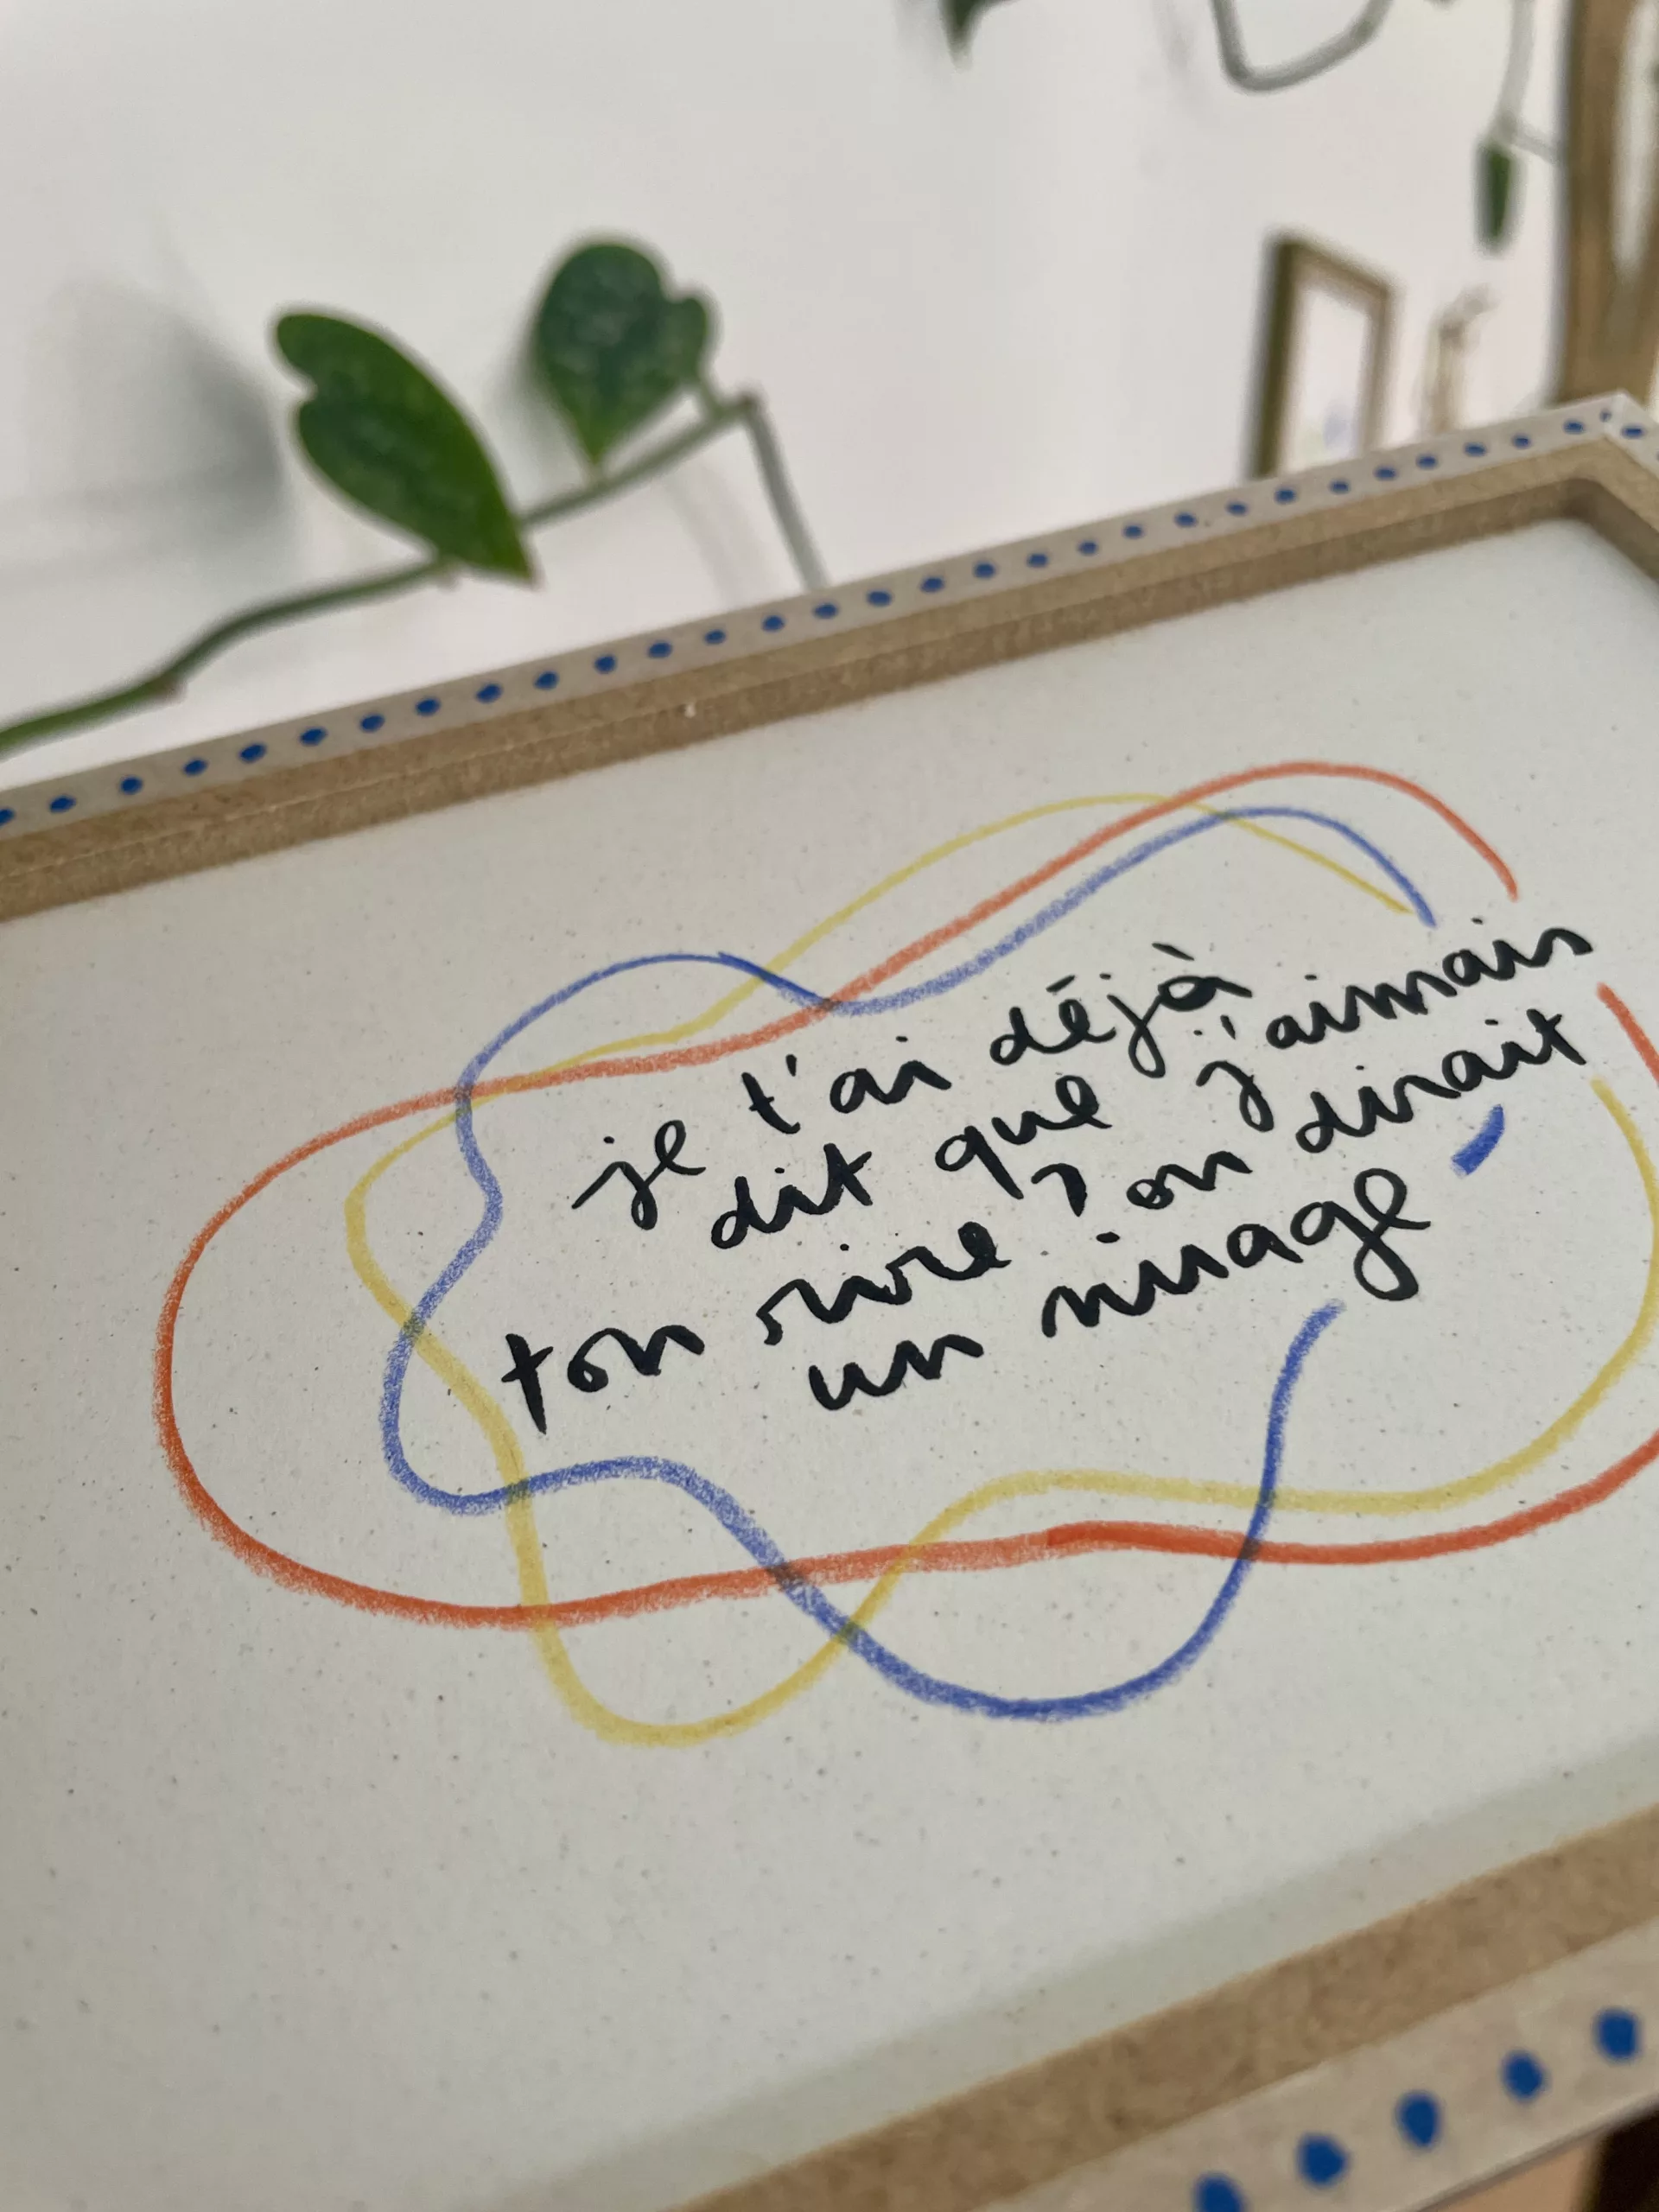 je t'ai déjà
dit que j'aimais
ton rire, on dirait
un mirage